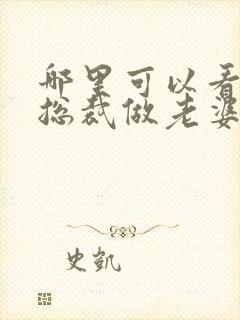 哪里可以看
总裁做老婆
史凯